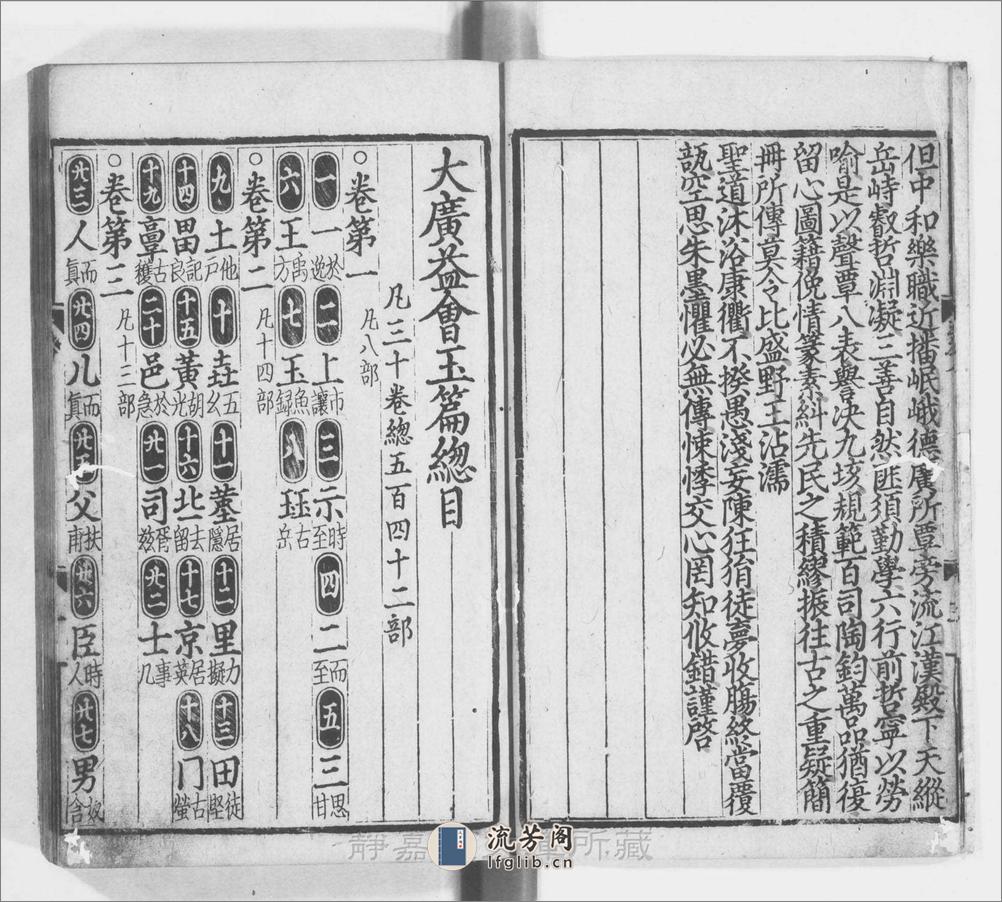 但中和樂職近播岷峨德廣所覃旁流江漢殿下天縱
岳峙叡哲淵凝三善自然匪須勤學六行前哲寧以勞
喻是以聲覃八表譽決九垓規範百司陶鈞萬品猶復
留心圖籍俛情篆素糾先民之積繆振往古之重疑簡
冊所傳莫令比盛野王沾濡
聖道沐浴康衢不揆愚淺妄陳狂狷徒夢收腸終當覆
瓿空思朱墨懼必無傳悚悸交心罔知攸錯謹啓
大廣益會玉篇總目
凡三十卷總五百四十二部
○卷第一 凡八部
一 一 於逸 二 上 市讓 三 示 時至 四 二 而至 五 三 思甘
六 王 禹方 七 玉 魚録 八 玨 古岳
○卷第二 凡十四部
九 土 他戶 十 垚 五幺 十一 堇 居隱 十二 里 力擬 十三 田 徒堅
十四 畕 記良 十五 黃 胡光 十六 北 去留 十七 京 居英 十八 冂 古螢
十九 𩫏 古穫 二十 邑 於急 廿一 司 胥玆 廿二 士 事几
○卷第三 凡十三部
廿三 人 而真 廿四 儿 而真 廿五 父 扶甫 廿六 臣 時人 廿七 男 奴含
静嘉 所藏
流芳阁
lfglib.cn